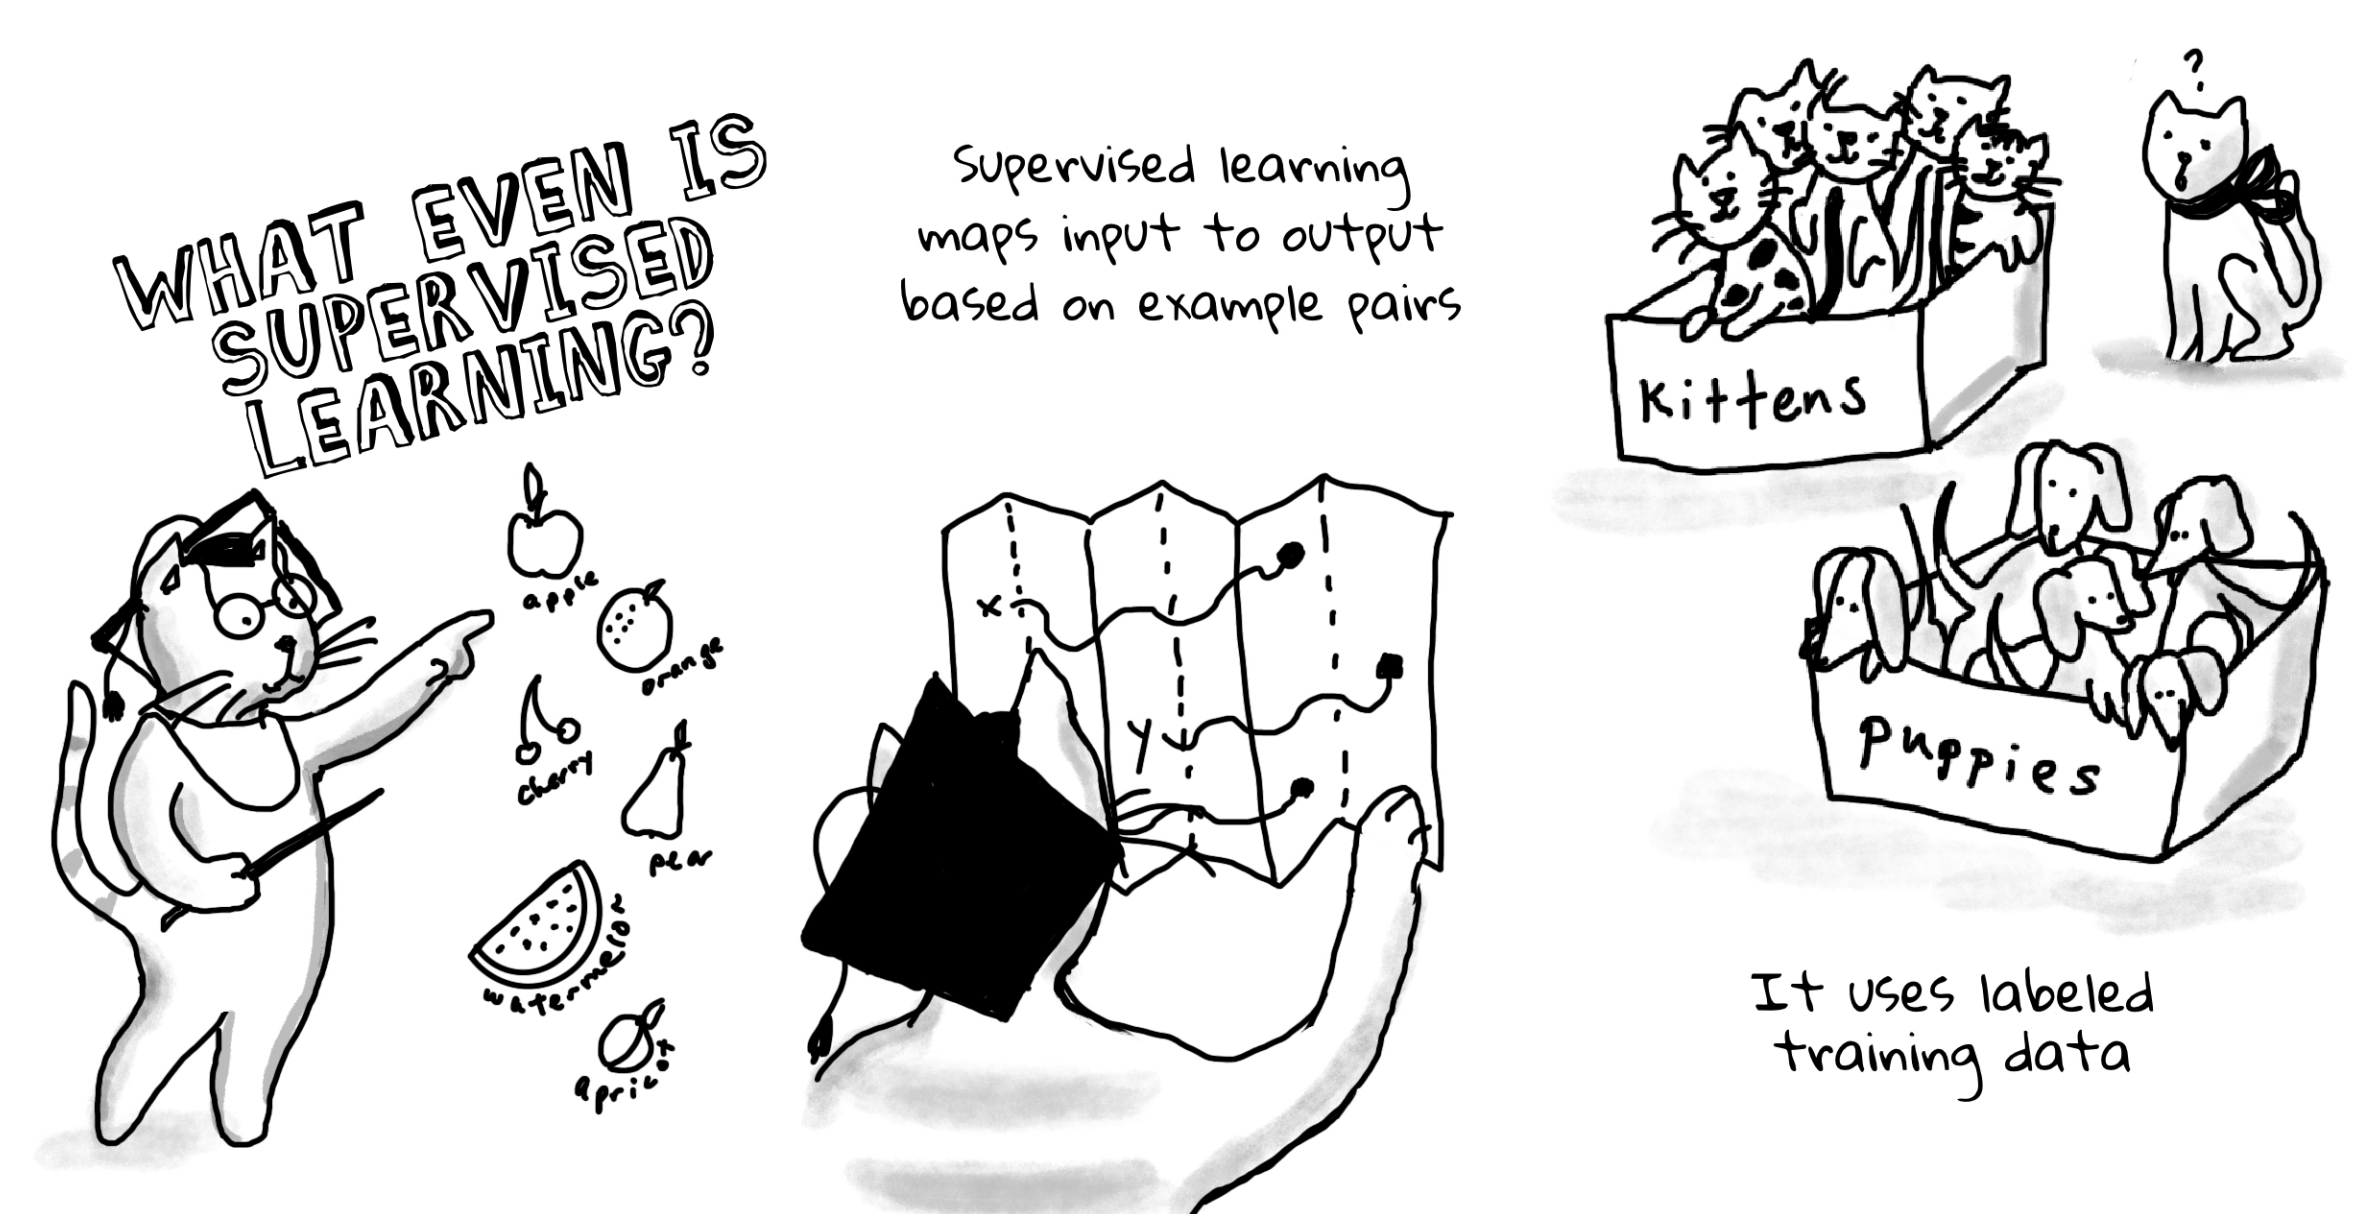 WHAT EVEN IS
SUPERVISED
LEARNING?
apple
orange
cherry
pear
watermelon
apricot
Supervised learning
maps input to output
based on example pairs
x
y
?
Kittens
puppies
It uses labeled
training data